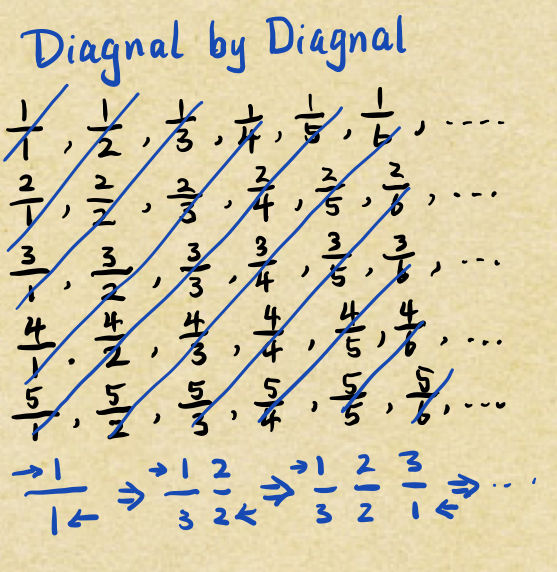 Diagnal by Diagnal
1/1, 1/2, 1/3, 1/4, 1/5, 1/6, ....
2/1, 2/2, 2/3, 2/4, 2/5, 2/6, ...
3/1, 3/2, 3/3, 3/4, 3/5, 3/6, ...
4/1, 4/2, 4/3, 4/4, 4/5, 4/6, ...
5/1, 5/2, 5/3, 5/4, 5/5, 5/6, ...
→1/1← ⇒ →1/3 2/2← ⇒ →1/3 2/2 3/1← ⇒ ...